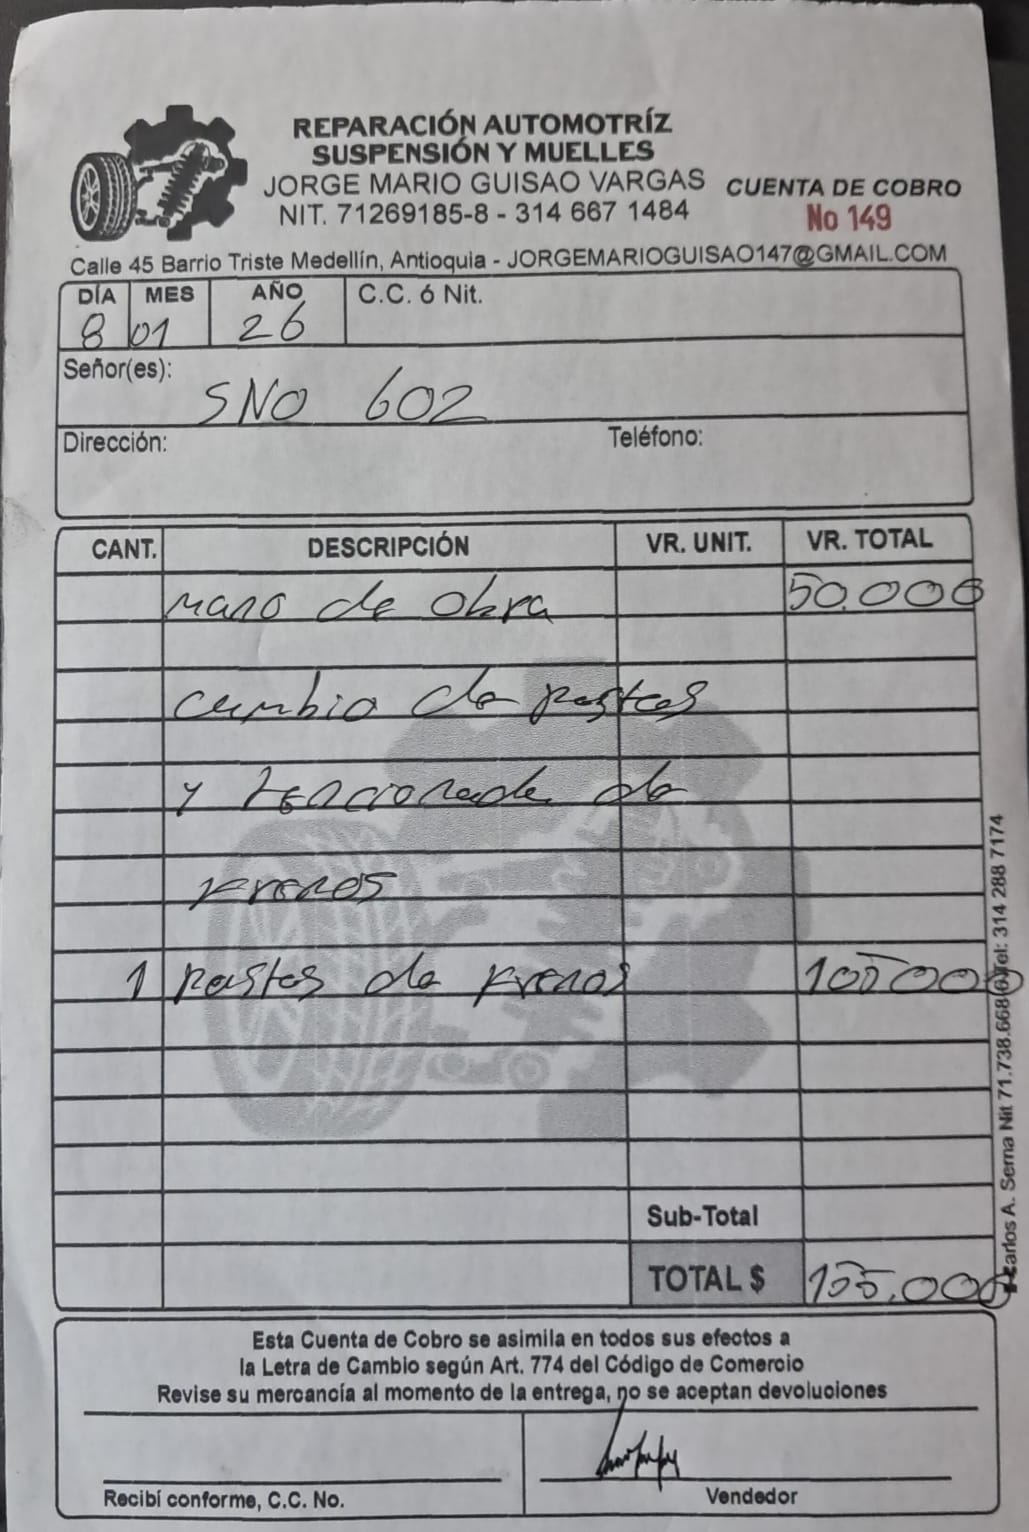 REPARACIÓN AUTOMOTRÍZ
SUSPENSIÓN Y MUELLES
JORGE MARIO GUISAO VARGAS
NIT. 71269185-8 - 314 667 1484
CUENTA DE COBRO
No 149
Calle 45 Barrio Triste Medellín, Antioquia - JORGEMARIOGUISAO147@GMAIL.COM
DÍA MES AÑO C.C. ó Nit.
8 01 26
Señor(es): SNO 602
Dirección: Teléfono:
CANT. DESCRIPCIÓN VR. UNIT. VR. TOTAL
mano de obra 50.000
cambio de pastas
y tencionada de
frenos
1 pastas de frenos 105000
Sub-Total
TOTAL $ 155.000
Esta Cuenta de Cobro se asimila en todos sus efectos a
la Letra de Cambio según Art. 774 del Código de Comercio
Revise su mercancía al momento de la entrega, no se aceptan devoluciones
Recibí conforme, C.C. No. Vendedor
Carlos A. Serna Nit 71.738.668 Tel: 314 288 7174